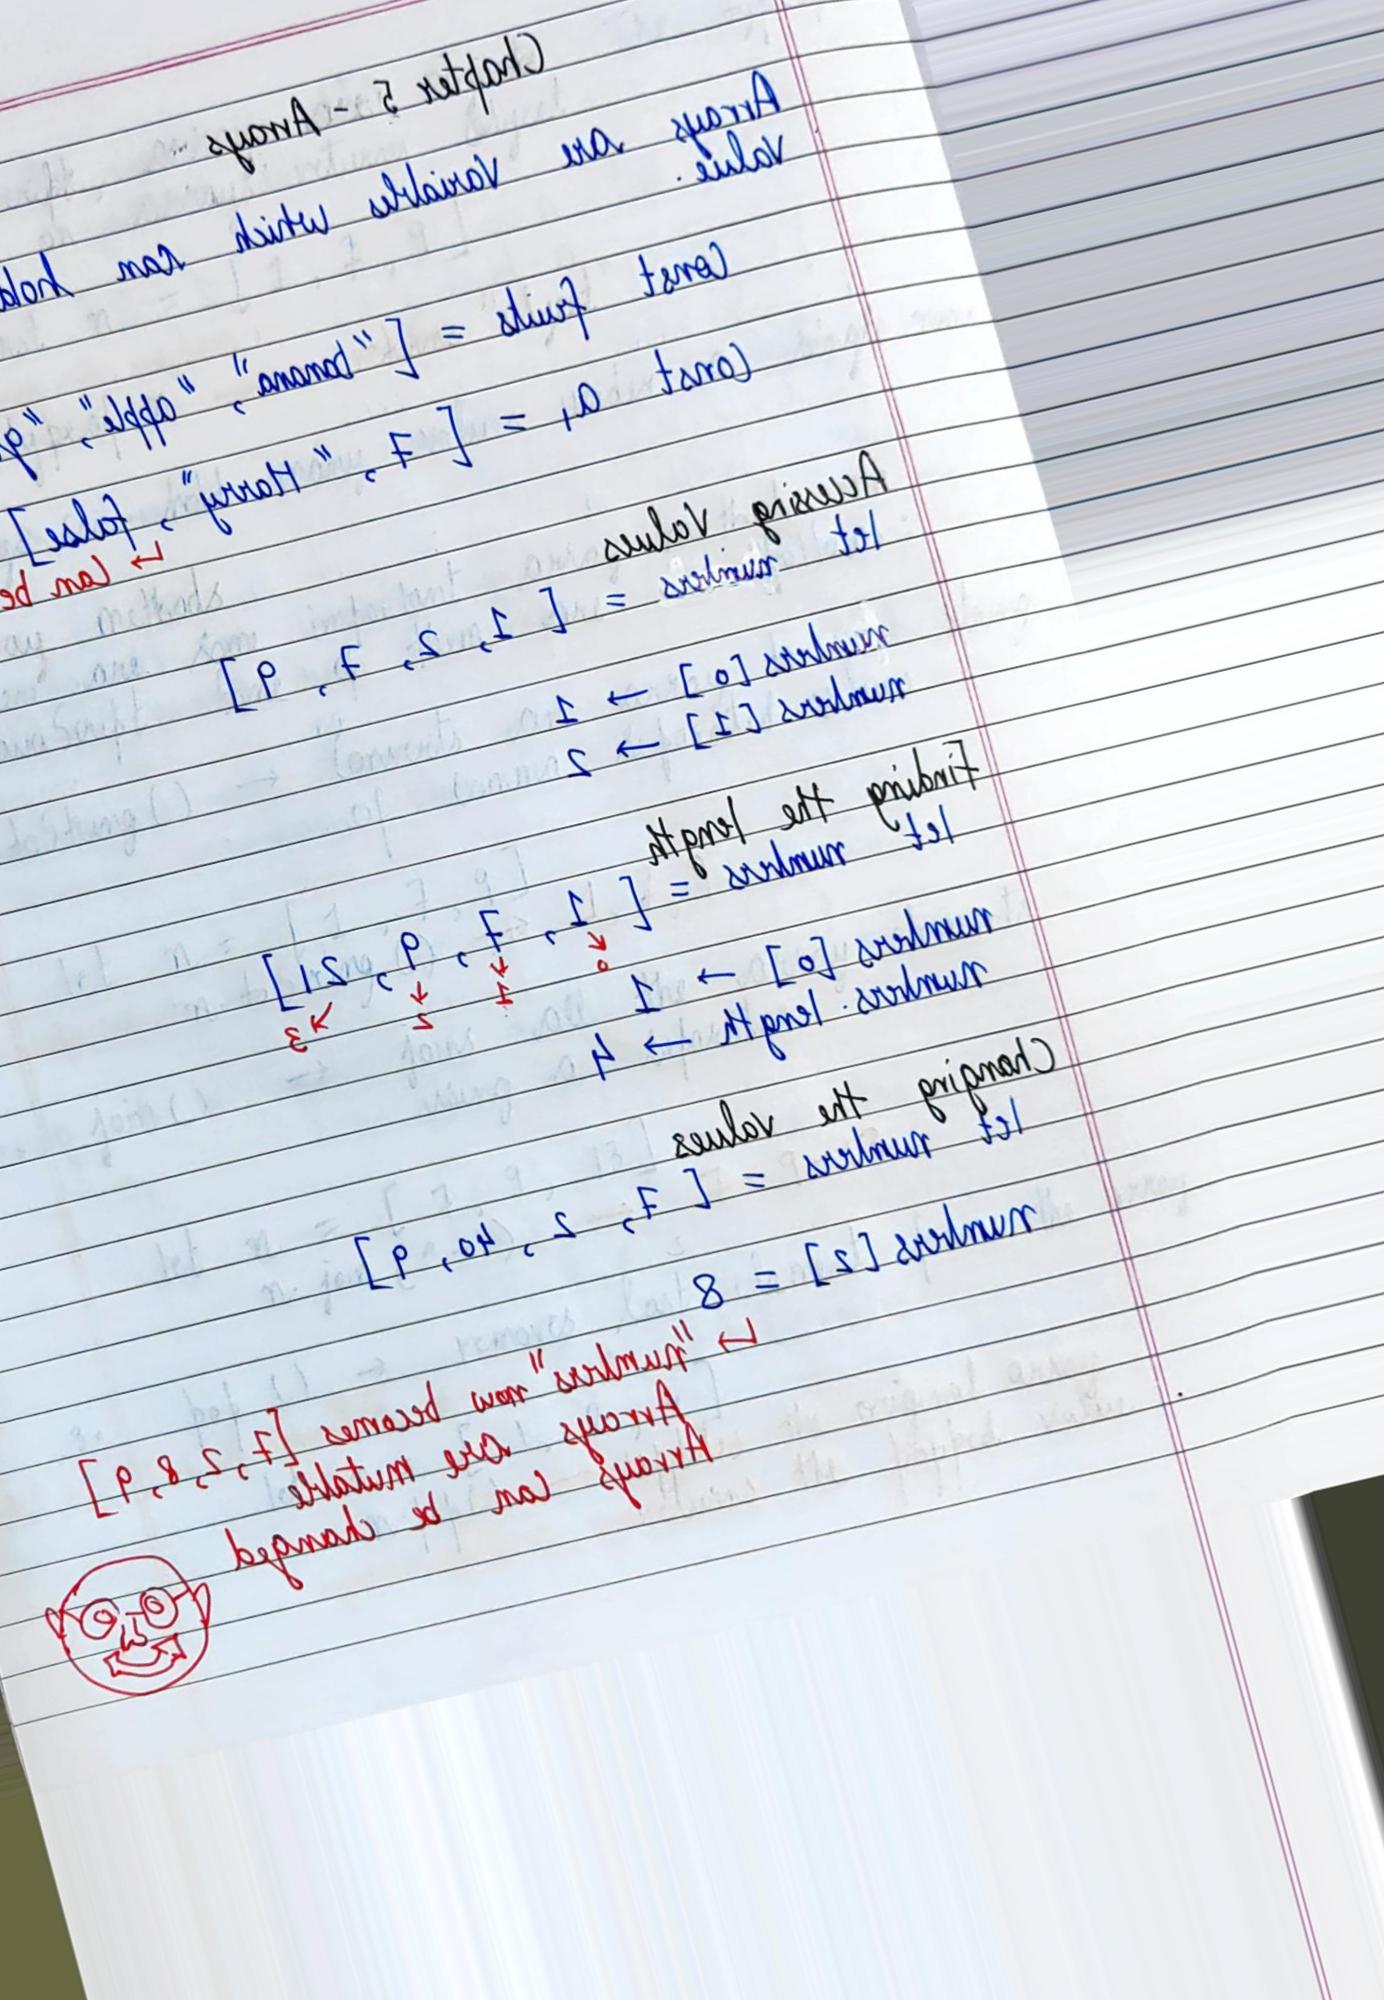 Chapter 5 - Arrays
Arrays are variables which can hold
value.
Const fruits = ["banana", "apple", "g
Const a₁ = [7, "Harry", false]
↳ can be
Accessing Values
let numbers = [1, 2, 7, 9]
numbers [0] → 1
numbers [1] → 2
Finding the length
let numbers = [1, 7, 9, 21]
0 1 2 3
numbers [0] → 1
numbers.length → 4
Changing the values
let numbers = [7, 2, 40, 9]
numbers [2] = 8
↳ "numbers" now becomes [7, 2, 8, 9]
Arrays are mutable
Arrays can be changed